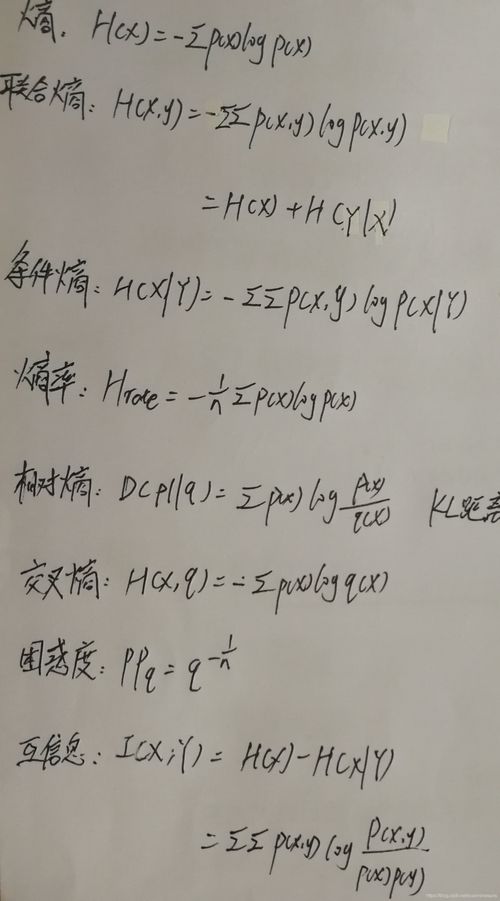 熵. H(X) = -Σp(x)logp(x)
联合熵: H(X,y) = -ΣΣp(x,y)logp(x,y)
= H(X) + H(Y|X)
条件熵: H(X|Y) = -ΣΣp(x,y)logp(X|Y)
熵率: Hrate = -1/n Σp(x)logp(x)
相对熵: D(p||q) = Σp(x)log p(x)/q(x) KL距离
交叉熵: H(X,q) = -Σp(x)logq(x)
困惑度: PPq = q^(-1/n)
互信息: I(X;Y) = H(X)-H(X|Y)
= ΣΣp(x,y)log p(x,y)/p(x)p(y)